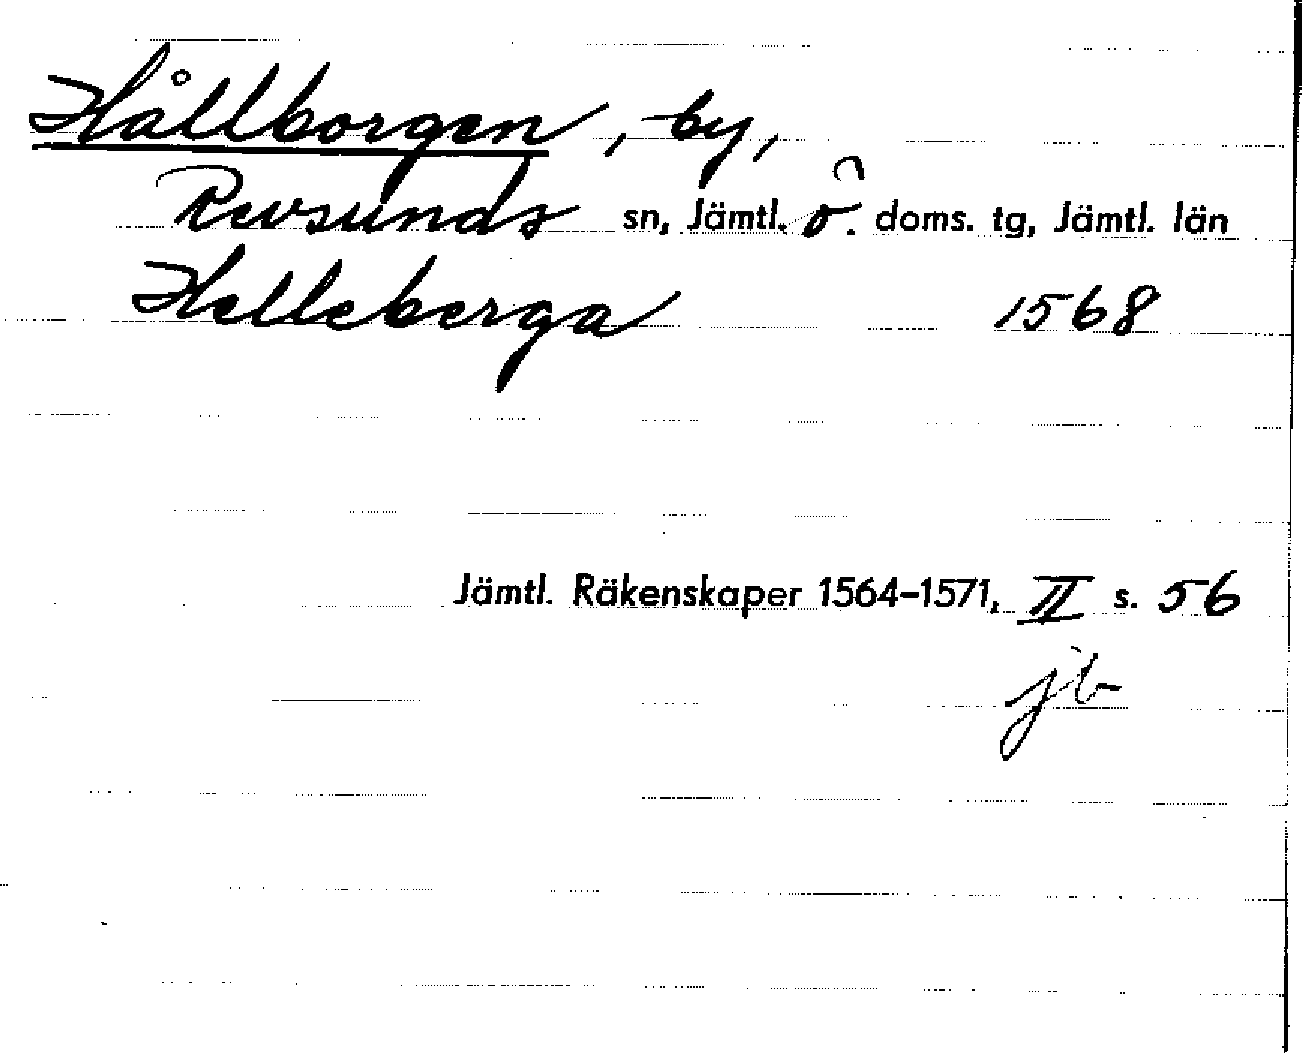 Hållborgen, by,
Revsunds sn, Jämtl. ö. doms. tg, Jämtl. län
Helleberga 1568
Jämtl. Räkenskaper 1564–1571, II s. 56
jb